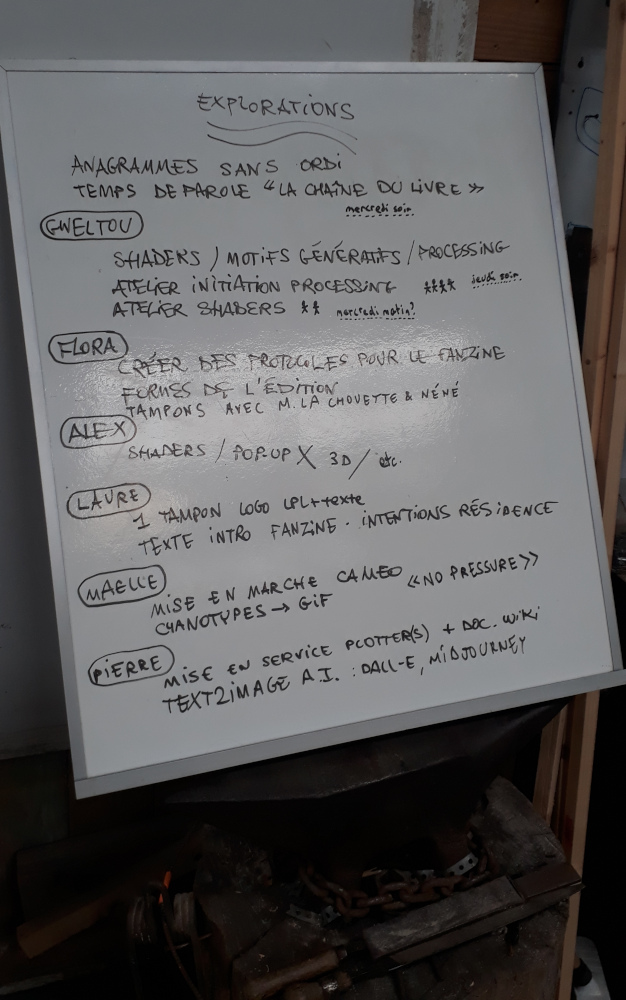 EXPLORATIONS
ANAGRAMMES SANS ORDI
TEMPS DE PAROLE "LA CHAÎNE DU LIVRE »
mercredi soir
GWELTOU
SHADERS / MOTIFS GÉNÉRATIFS / PROCESSING
ATELIER INITIATION PROCESSING **** jeudi soir
ATELIER SHADERS ** mercredi matin?
FLORA
CRÉER DES PROTOCOLES POUR LE FANZINE
FORMES DE L'ÉDITION
TAMPONS AVEC M. LA CHOUETTE & NÉNÉ
ALEX
SHADERS / POP-UP X 3D / etc.
LAURE
1 TAMPON LOGO LPL+texte
TEXTE INTRO FANZINE . INTENTIONS RÉSIDENCE
MAELLE
MISE EN MARCHE CAMEO «NO PRESSURE»
CYANOTYPES → GIF
PIERRE
MISE EN SERVICE PLOTTER(S) + DOC. WIKI
TEXT2IMAGE A.I. : DALL-E, MIDJOURNEY